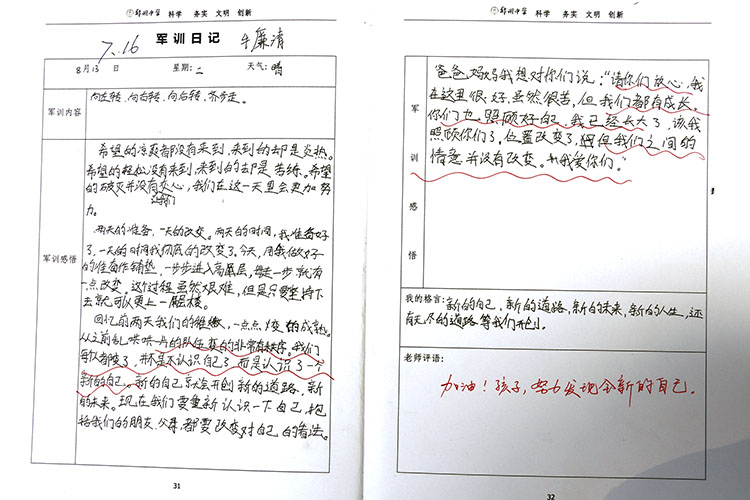 鄭州中学 科学 务实 文明 创新
7.16 军训日记 牛廉清
8月13日 星期：二 天气：晴
军训内容
向左转、向右转、向后转、齐步走。
军训感悟
希望的凉爽都没有来到，来到的却是炎热。
希望的轻松没有来到，来到的却是苦练。希望
的破灭并没有灰心，我们在这一天里会更加努
力。
两天的准备，一天的改变。两天的时间，我准备好
了，一天的时间我彻底的改变了。今天，用我做好
的准备作铺垫，一步步进入高层，每走一步就有
一点改变。这个过程虽然艰难，但是只要坚持下
去就可以更上一层楼。
回忆前两天我们的稚嫩，一点点变的成熟。
从之前乱哄哄的队伍变的非常有秩序。我们
每个人都变了，并不是不认识自己了而是认识了一个
新的自己。新的自己来开创新的道路，新
的未来。现在我们要重新认识一下自己，包
括我们的朋友，父母，都要改变对自己的看法。
31
鄭州中学 科学 务实 文明 创新
军训感悟
爸爸妈妈我想对你们说："请你们放心，我
在这里很好，虽然很苦，但我们都有成长。
你们也照顾好自己，我已经长大了，该我
照顾你们了，位置改变了，但我们之间的
情意并没有改变。我爱你们。"
我的格言：新的自己，新的道路，新的未来，新的人生，还
有无尽的道路等我们开创。
老师评语：
加油！孩子，努力发现全新的自己。
32